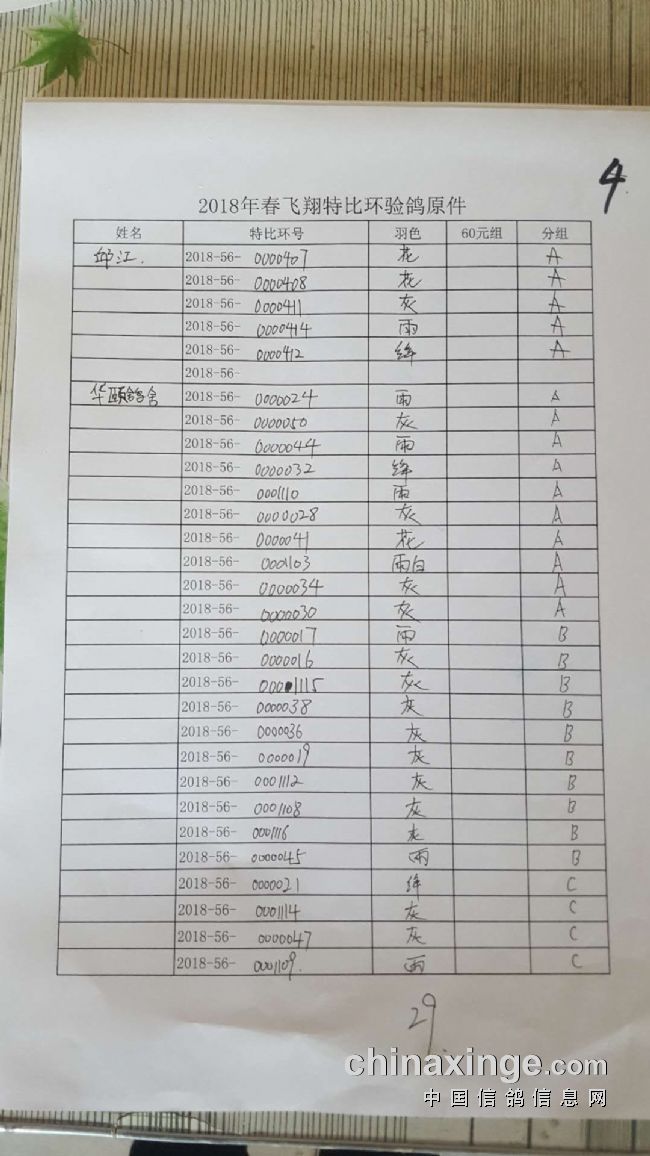 4
2018年春飞翔特比环验鸽原件
姓名 特比环号 羽色 60元组 分组
邰江. 2018-56- 0000407 花 A
2018-56- 0000408 花 A
2018-56- 0000411 灰 A
2018-56- 0000414 雨 A
2018-56- 0000412 绛 A
2018-56-
华颐鸽舍 2018-56- 0000024 雨 A
2018-56- 0000050 灰 A
2018-56- 0000044 雨 A
2018-56- 0000032 绛 A
2018-56- 0001110 雨 A
2018-56- 0000028 灰 A
2018-56- 0000041 花 A
2018-56- 0001103 雨白 A
2018-56- 0000034 灰 A
2018-56- 0000030 灰 A
2018-56- 0000017 雨 B
2018-56- 0000016 灰 B
2018-56- 0001115 灰 B
2018-56- 0000038 灰 B
2018-56- 0000036 灰 B
2018-56- 0000019 灰 B
2018-56- 0001112 灰 B
2018-56- 0001108 灰 B
2018-56- 0001116 灰 B
2018-56- 0000045 雨 B
2018-56- 0000021 绛 C
2018-56- 0001114 灰 C
2018-56- 0000047 灰 C
2018-56- 0001109. 雨 C
29
chinaxinge.com
中国信鸽信息网